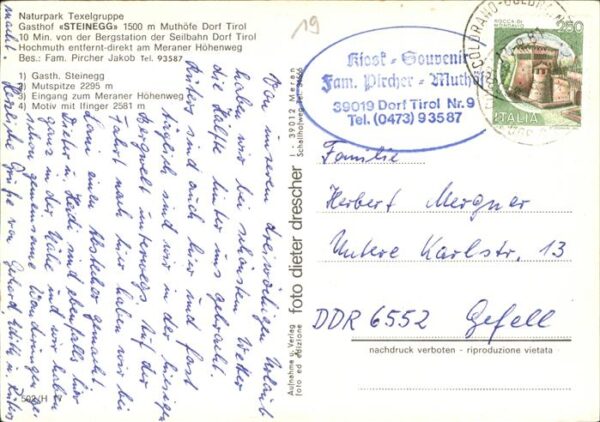 Naturpark Texelgruppe
Gasthof «STEINEGG» 1500 m Muthöfe Dorf Tirol
10 Min. von der Bergstation der Seilbahn Dorf Tirol
Hochmuth entfernt-direkt am Meraner Höhenweg
Bes.: Fam. Pircher Jakob Tel. 93587
1) Gasth. Steinegg
2) Mutspitze 2295 m
3) Eingang zum Meraner Höhenweg
4) Motiv mit Ifinger 2581 m
Von unseren dreiwöchigen Urlaub
haben wir bei schönstem Wetter
die Hälfte hinter uns gebracht.
Küsters sind auch hier und fast
täglich sind wir in der hiesigen
Bergwelt unterwegs. Auf der
Fahrt nach hier haben wir bei
Loni einen Abstecher gemacht.
Dieter u. Heidi sind ebenfalls hier
ganz in der Nähe und wir haben
schon gemeinsame Wanderungen ge-
macht. Herzliche Grüße von Gerhard,
502/H 17
Aufnahme u. Verlag
foto ed edizione
foto dieter drescher
I - 39012 Meran
19
Kiosk - Souvenir
Fam. Pircher - Muthöfe
39019 Dorf Tirol Nr. 9
Tel. (0473) 93587
ROCCA DI
MONDAVIO
250
ITALIA
Familie
Herbert Mergner
Untere Karlstr. 13
DDR 6552 Gefell
nachdruck verboten - riproduzione vietata